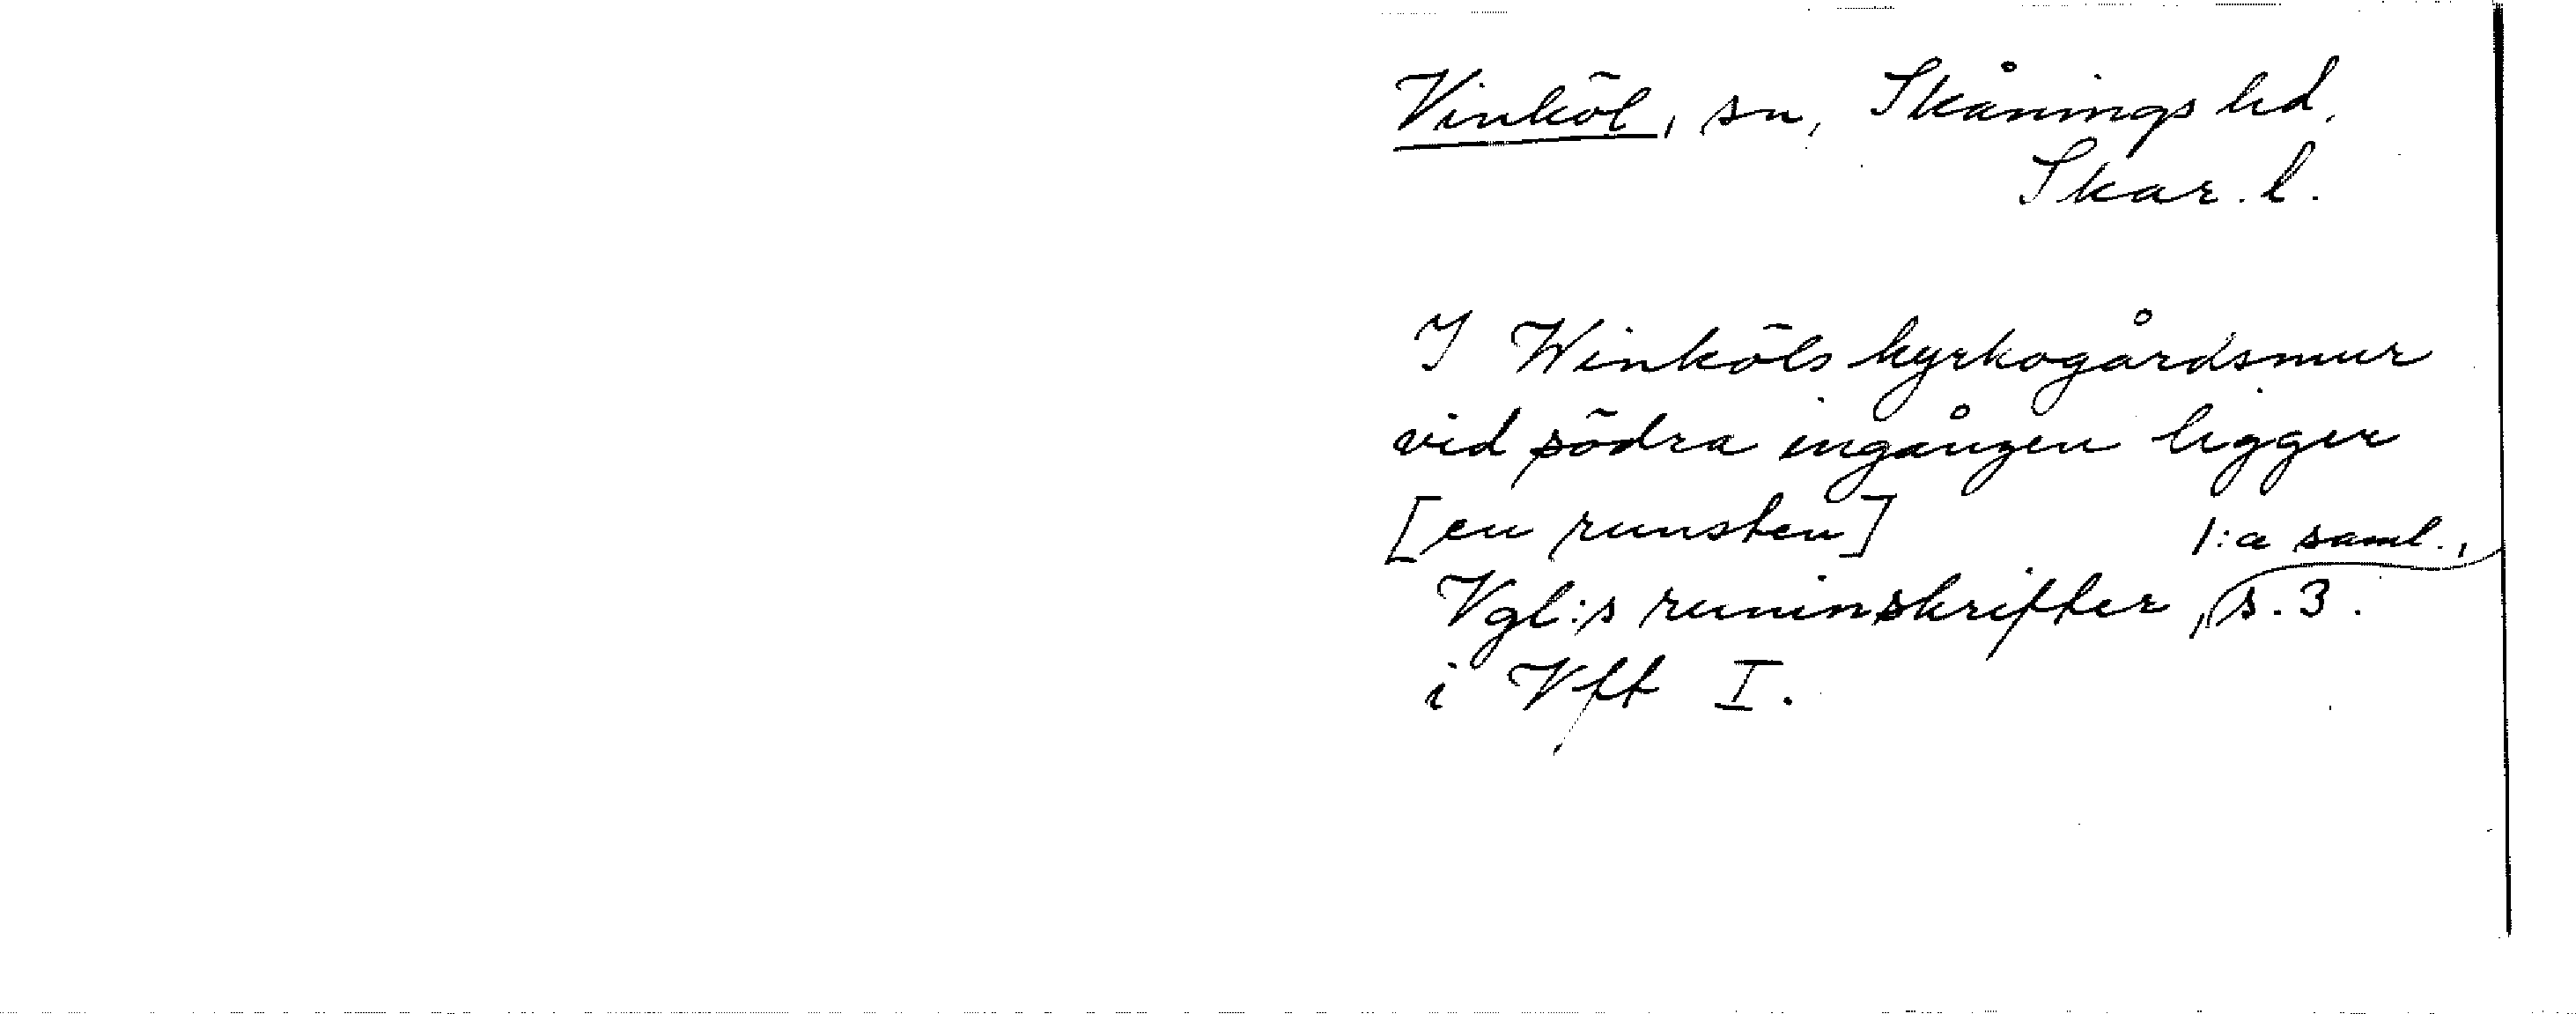 Vinköl, sn, Skånings hd,
Skar. l.
I Winköls kyrkogårdsmur
vid södra ingången ligger
[en runsten]
Vgl:s runinskrifter, 1:a saml., s. 3.
i Vft I.